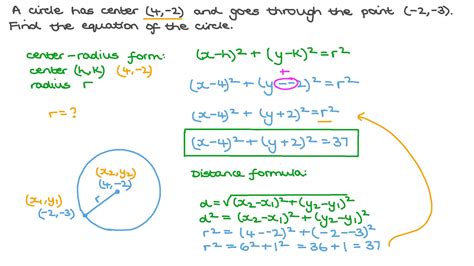 A circle has center (4,-2) and goes through the point (-2,-3).
Find the equation of the circle.
center-radius form:
center (h,k) (4,-2)
radius r
r = ?
(x-h)² + (y-k)² = r²
+
(x-4)² + (y--2)² = r²
(x-4)² + (y+2)² = r²
(x-4)² + (y+2)² = 37
(x₂,y₂)
(4,-2)
r
(x₁,y₁)
(-2,-3)
Distance formula:
d = √(x₂-x₁)² + (y₂-y₁)²
d² = (x₂-x₁)² + (y₂-y₁)²
r² = (4--2)² + (-2--3)²
r² = 6² + 1² = 36 + 1 = 37